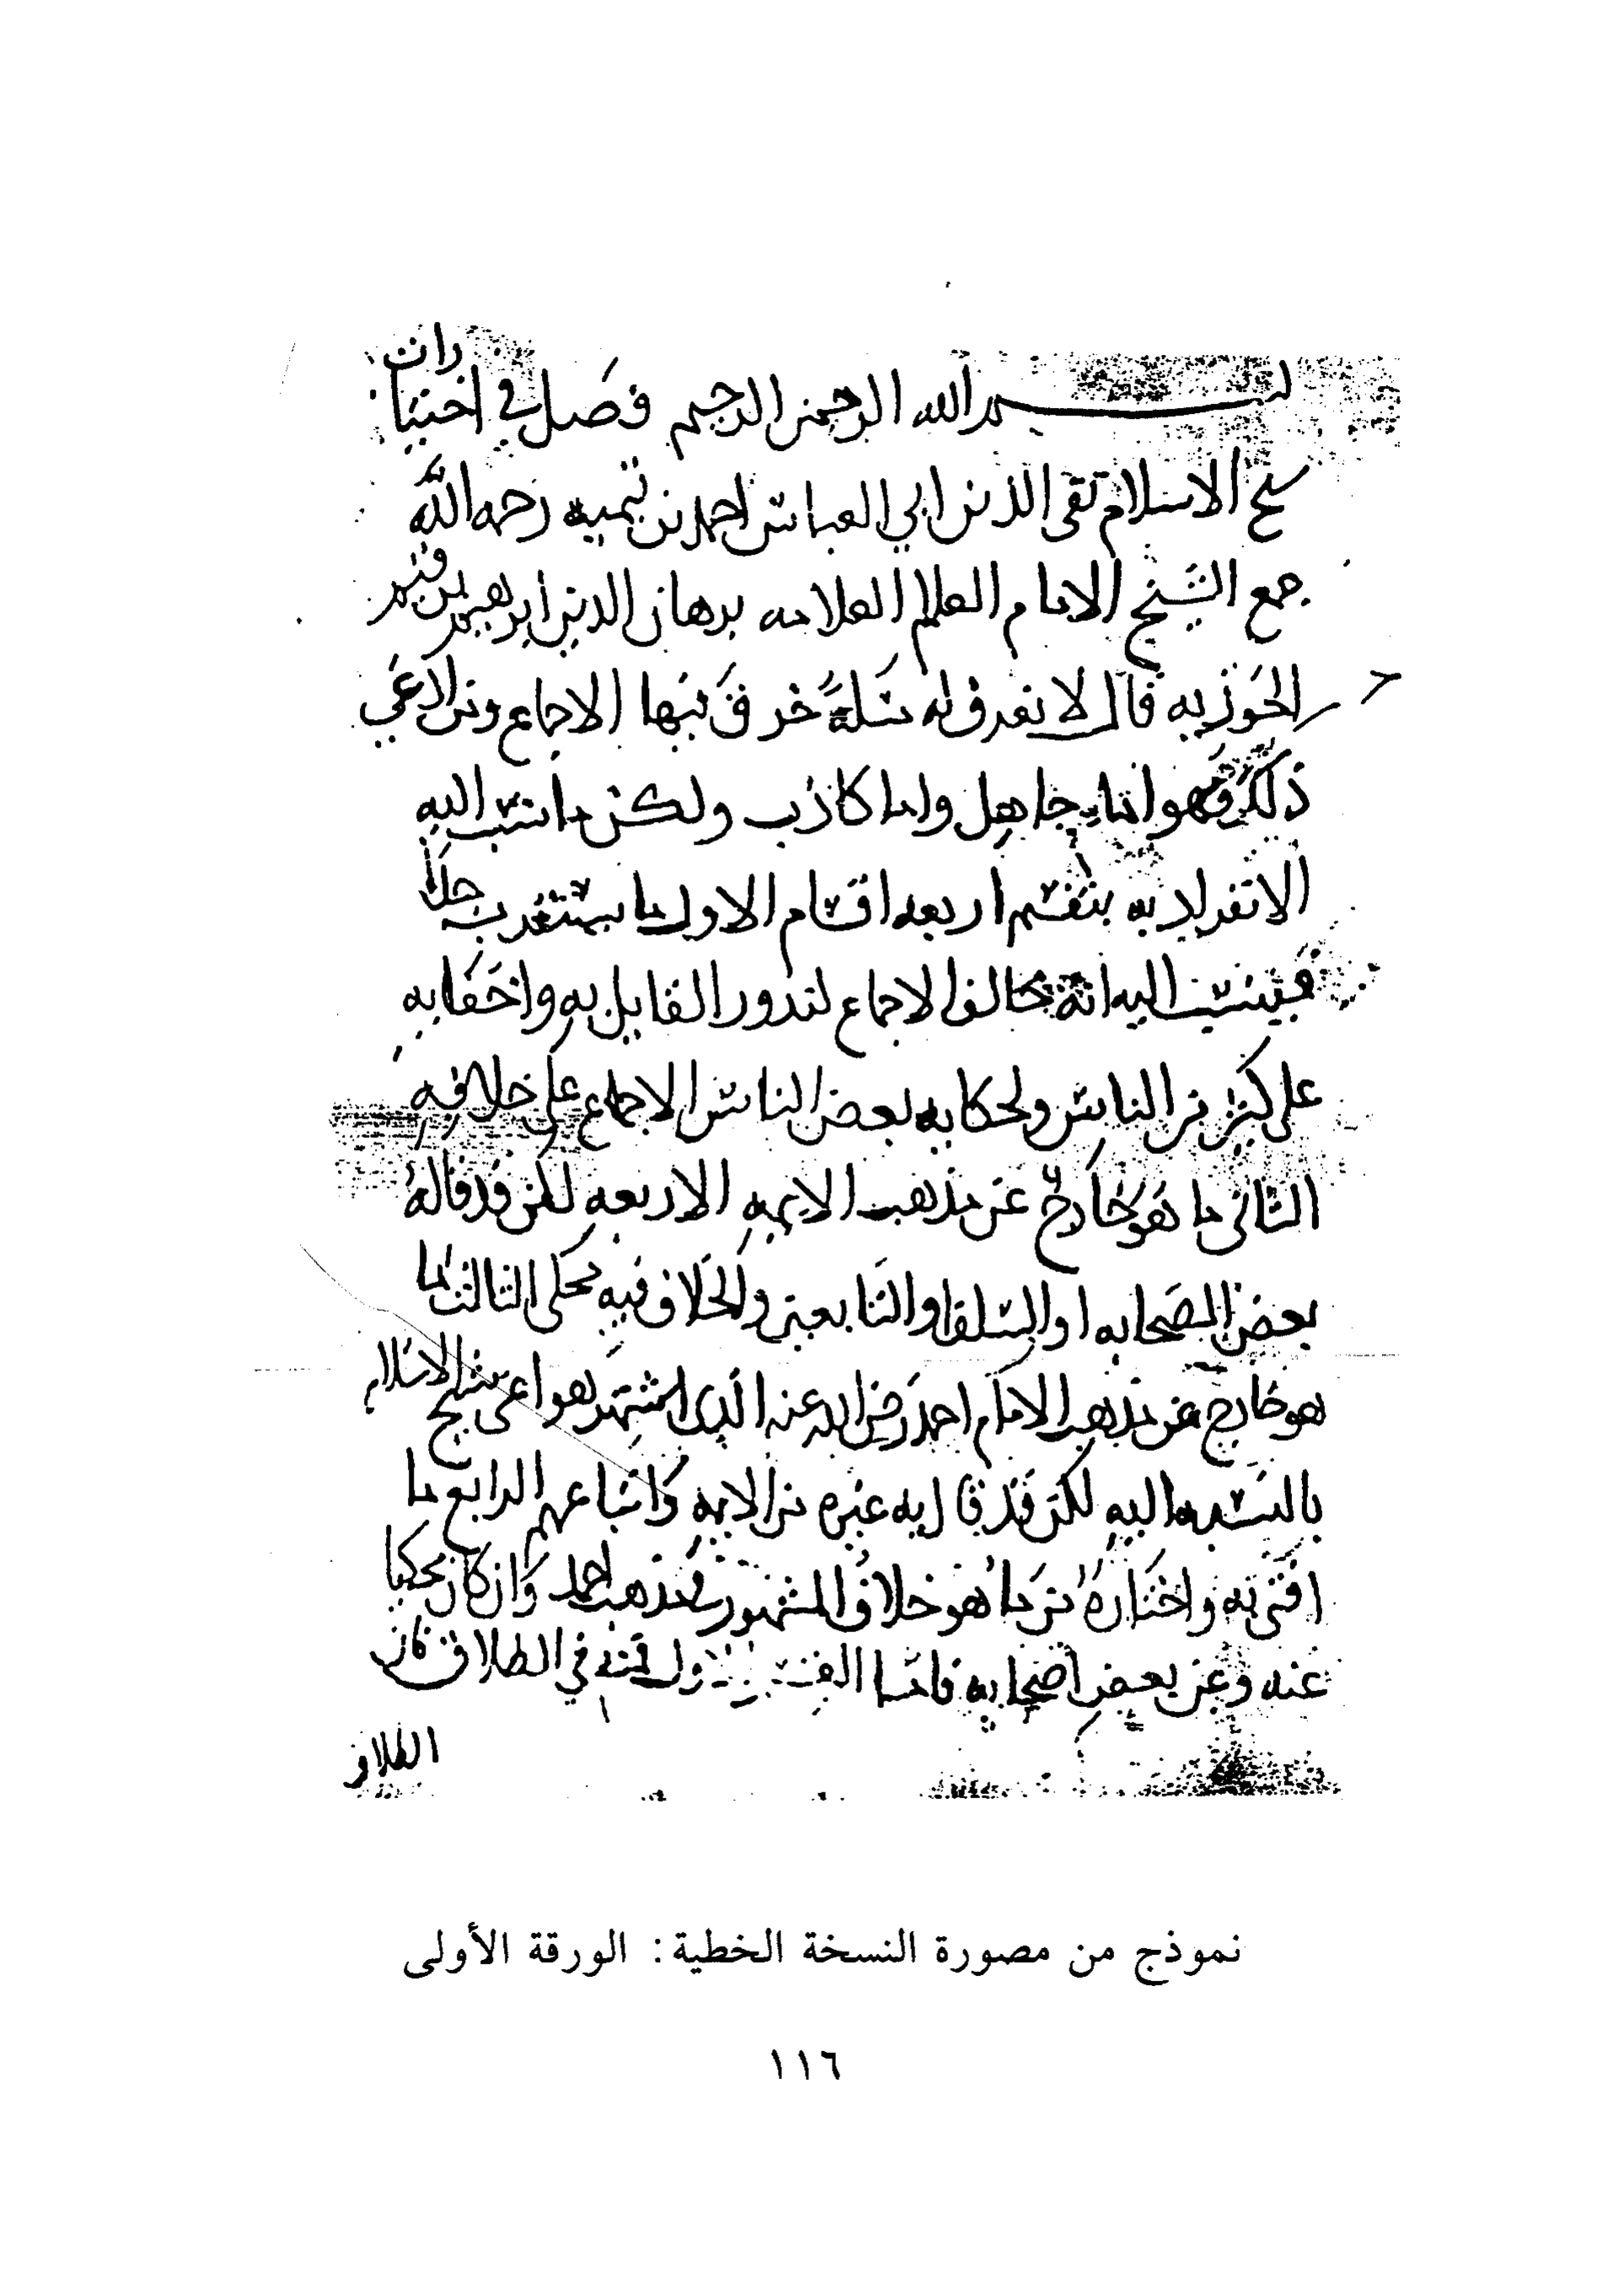 بسم الله الرحمن الرحيم فصل في اختيارات
شيخ الاسلام تقي الدين ابي العباس احمد بن تيميه رحمه الله
جمع الشيخ الامام العالم العلامه برهان الدين ابرهيم بن قيم
الجوزيه قال لا نعرف له مسلةً خرق فيها الاجماع ومن ادعي
ذلك فهو اما جاهل واما كاذب ولكن ما نسب اليه
الانفراد به ينقسم اربعه اقسام الاول ما يستغرب جدًا
فينسب اليه انه خالف الاجماع لندور القايل به واخفايه
على كثير من الناس ولحكايه بعض الناس الاجماع على خلافه
الثاني ما هو خارج عن مذهب الايمه الاربعه لكن قد قاله
بعض الصحابه او السلف او التابعين والخلاف فيه محكى الثالث ما
هو خارج عن مذهب الامام احمد رضي الله عنه الذي اشتهر هو اعنى شيخ الاسلام
بالنسبه اليه لكن قد قال به غيره من الايمه واتباعهم الرابع ما
افتى به واختاره من ما هو خلاف المشهور في مذهب احمد وان كان محكيا
عنه وعن بعض اصحابه فاما القسم الاول في الطلاق
الطلاق
نموذج من مصورة النسخة الخطية: الورقة الأولى
١١٦